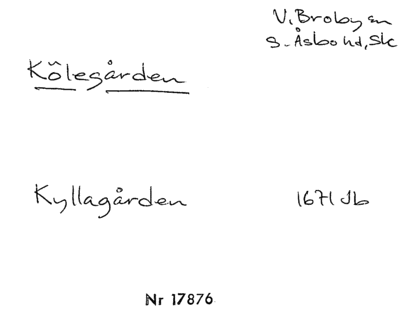 V. Broby sn
S. Åsbo hd, Sk
Kölegården
Kyllagården 1671 Jb
Nr 17876